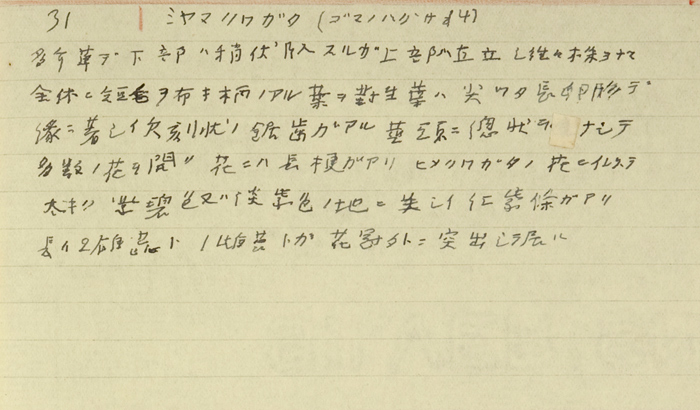 31 ミヤマクワガタ (ゴマノハグサ科)
多年草デ下部ハ稍伏臥スルガ上部ハ直立シ往々株ヲナス
全体ニ短毛ヲ布キ柄ノアル葉ヲ對生葉ハ尖ツタ長卵形デ
縁ニ著シイ欠刻状ノ鋸歯ガアル 茎頂ニ總状ヲ ナシテ
多数ノ花ヲ開ク 花ニハ長梗ガアリ ヒメクワガタノ花ニ似テ
大キク 紫碧色又ハ淡紫色ノ地ニ美シイ紅紫條ガアリ
長イ2雄蕊ト1雌蕊トガ花冠外ニ突出シテ居ル